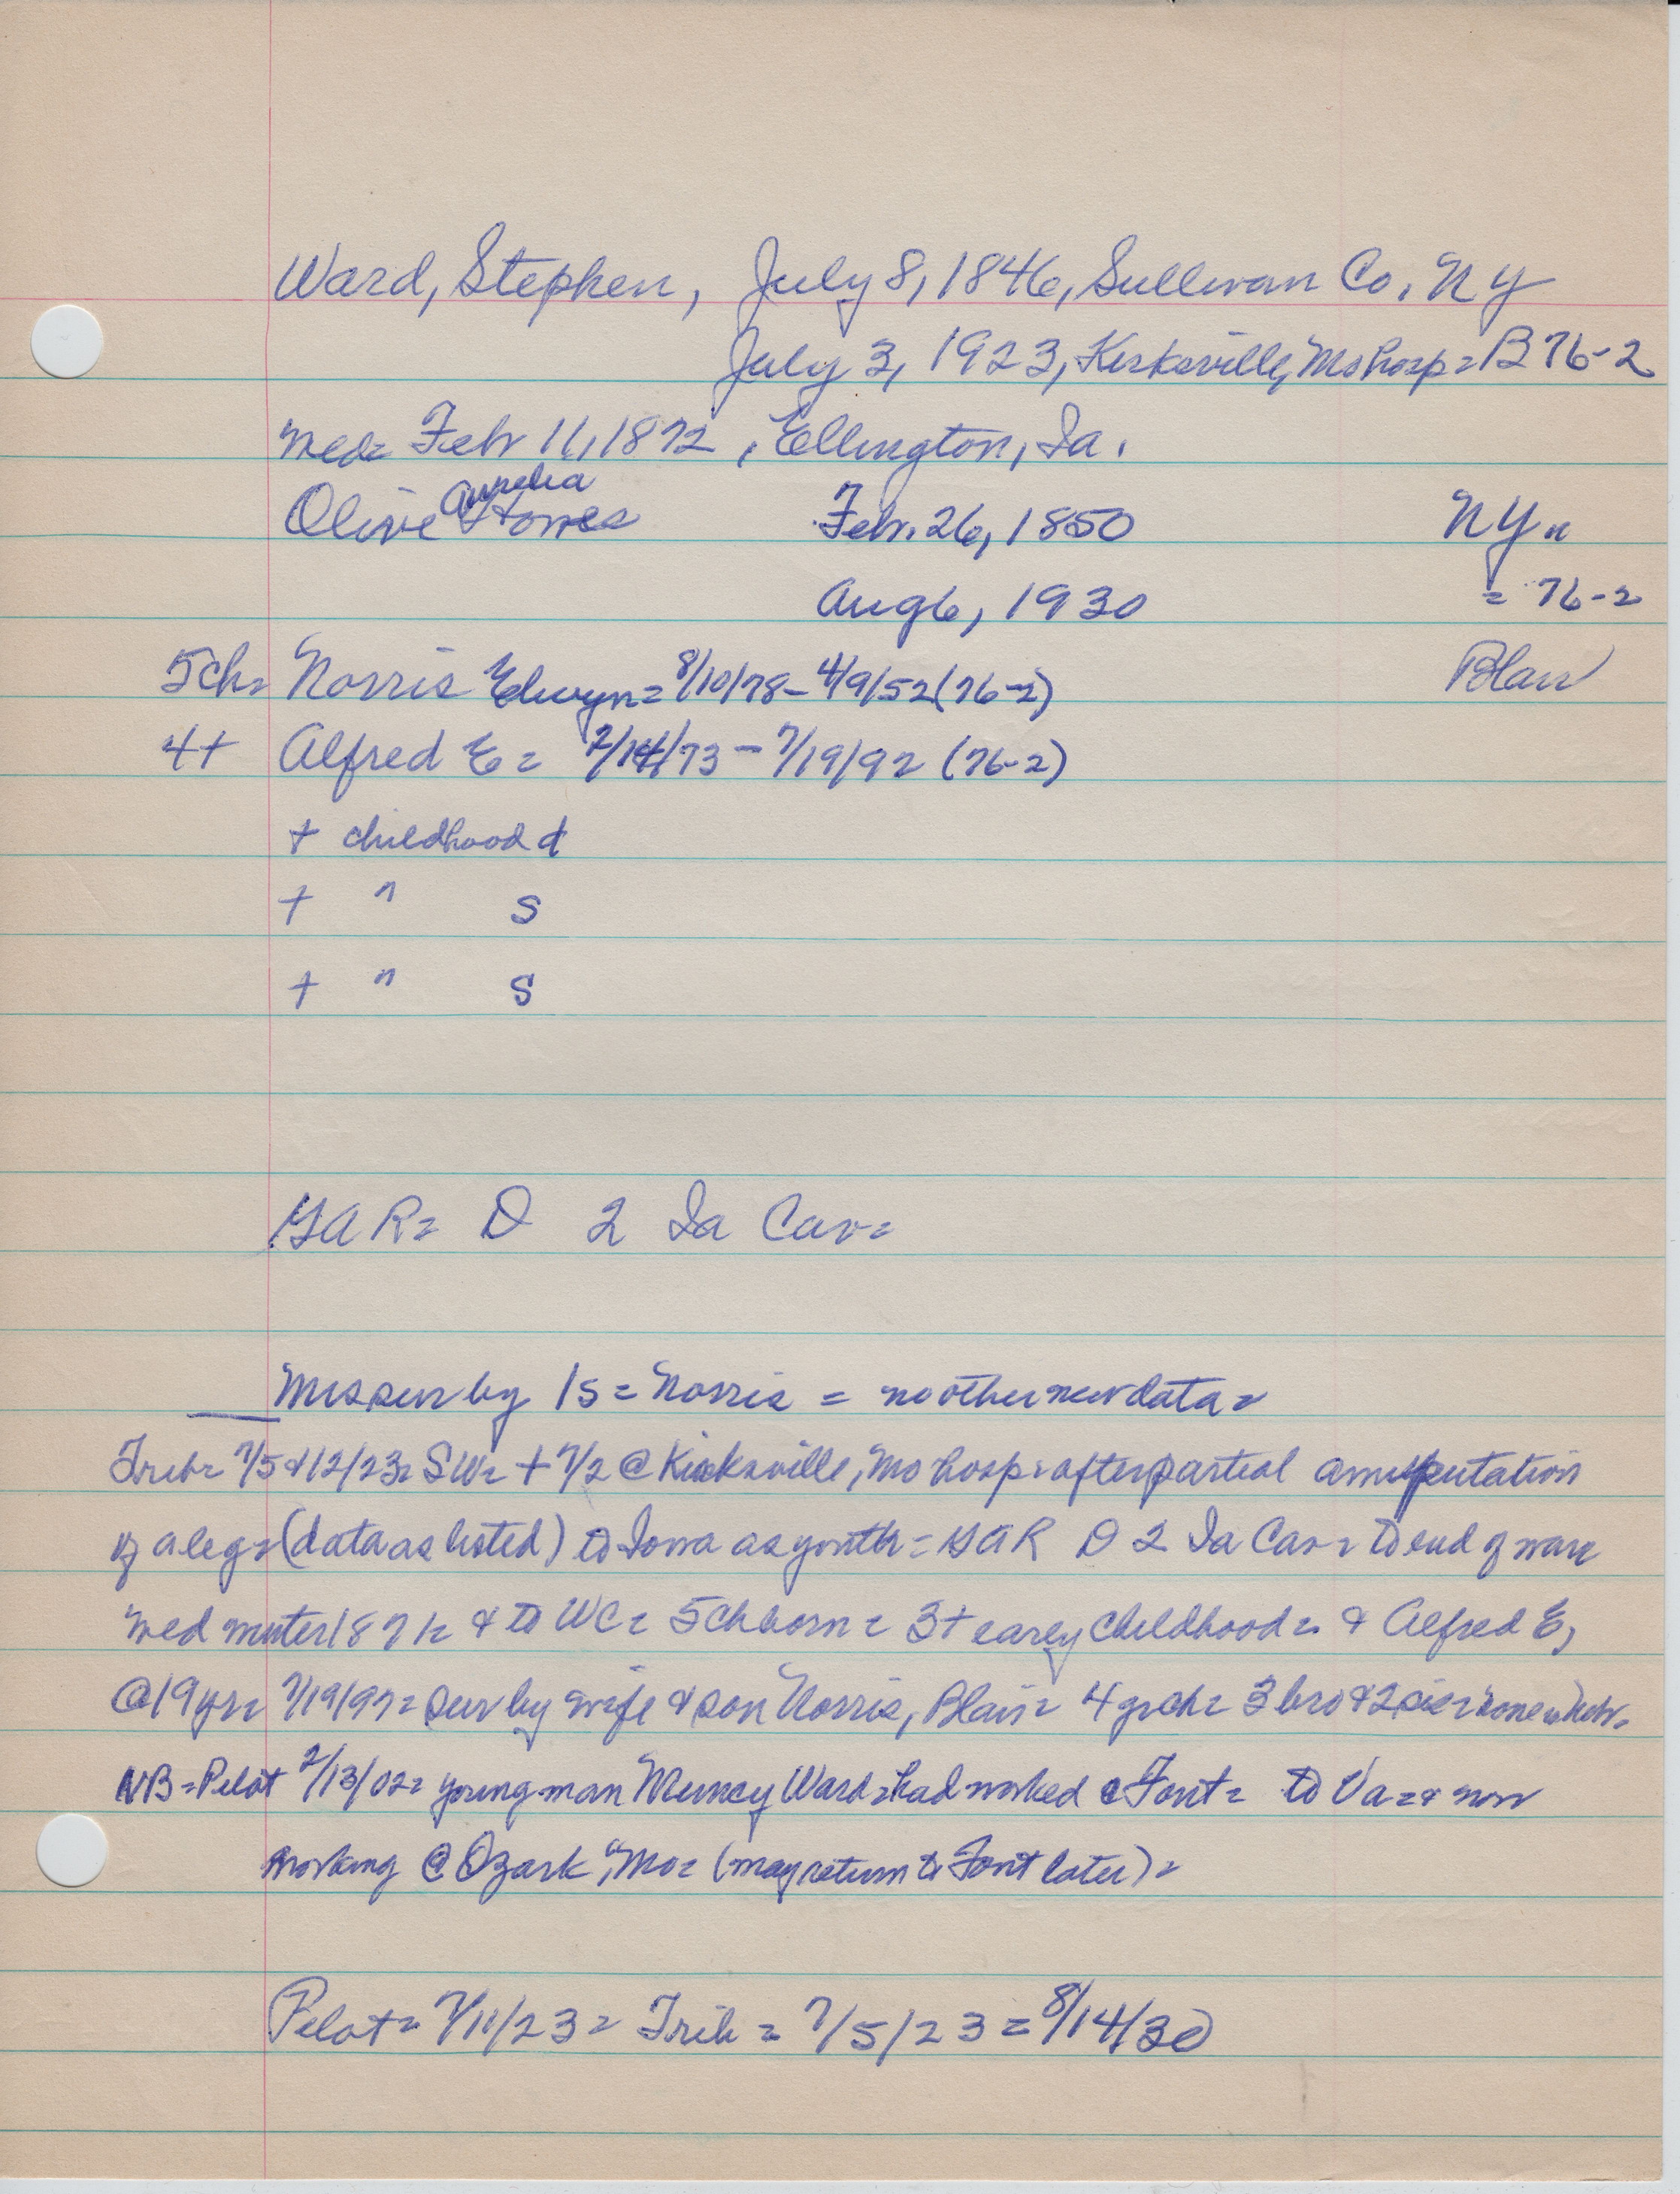 Ward, Stephen, July 8, 1846, Sullivan Co, NY
July 3, 1923, Kirksville, Mo hosp = B 76-2
med= Feb 11, 1872, Ellington, Ia.
Aurelia
Olive Feb. 26, 1850 NY =
Aug 6, 1930 = 76-2
5ch= Norris Elwyn = 8/10/78 - 4/9/52 (76-2) Blair
4+ Alfred E = 2/14/73 - 7/19/92 (76-2)
+ childhood d
+ " S
+ " S
GAR = D 2 Ia Cav =
Mrs sur by 1s = Norris = no other new data =
Trib = 7/5 & 12/23 = SW = + 7/2 @ Kirksville, Mo hosp = after partial amputation
of a leg = (data as listed) to Iowa as youth = GAR D 2 Ia Cav = to end of war =
med 187 & to WC = 5 ch born = 3+ early childhood = & Alfred E,
@ 19 yr = 7/19/9 = sur by wife & son Norris, Blair = 4 grch = 3 bro & 2 sis = none
NB = Pilot 2/13/02 = young man Ward = had worked @ Font = to Va = & now
working @ Ozark, Mo = (may return to Font later) =
Pilot = 7/11/23 = Trib = 7/5/23 = 8/14/30